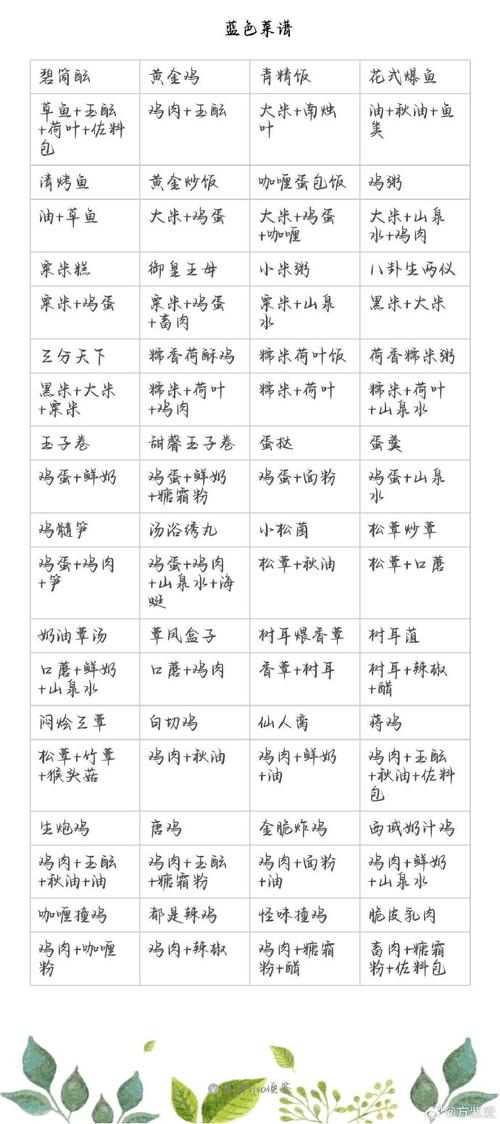 蓝色菜谱
碧筒酝 黄金鸡 青精饭 花式爆鱼
草鱼+玉酝 鸡肉+玉酝 大米+南烛 油+秋油+鱼
+荷叶+佐料 叶 类
包
清烤鱼 黄金炒饭 咖喱蛋包饭 鸡粥
油+草鱼 大米+鸡蛋 大米+鸡蛋 大米+山泉
+咖喱 水+鸡肉
粟米糕 御皇王母 小米粥 八卦生两仪
粟米+鸡蛋 粟米+鸡蛋 粟米+山泉 黑米+大米
+畜肉 水
三分天下 糯香荷酥鸡 糯米荷叶饭 荷香糯米粥
黑米+大米 糯米+荷叶 糯米+荷叶 糯米+荷叶
+粟米 +鸡肉 +山泉水
玉子卷 甜馨玉子卷 蛋挞 蛋羹
鸡蛋+鲜奶 鸡蛋+鲜奶 鸡蛋+面粉 鸡蛋+山泉
+糖霜粉 水
鸡髓笋 汤浴绣丸 小松菌 松蕈炒蕈
鸡蛋+鸡肉 鸡蛋+鸡肉 松蕈+秋油 松蕈+口蘑
+笋 +山泉水+海
蜓
奶油蕈汤 蕈凤盒子 树耳煨香蕈 树耳菹
口蘑+鲜奶 口蘑+鸡肉 香蕈+树耳 树耳+辣椒
+山泉水 +醋
闷烩三蕈 白切鸡 仙人脔 蒋鸡
松蕈+竹蕈 鸡肉+秋油 鸡肉+鲜奶 鸡肉+玉酝
+猴头菇 +油 +秋油+佐料
包
生炮鸡 唐鸡 金脆炸鸡 西域奶汁鸡
鸡肉+玉酝 鸡肉+玉酝 鸡肉+面粉 鸡肉+鲜奶
+秋油+油 +糖霜粉 +油 +山泉水
咖喱撞鸡 都是辣鸡 怪味撞鸡 脆皮乳肉
鸡肉+咖喱 鸡肉+辣椒 鸡肉+糖霜 畜肉+糖霜
粉 粉+醋 粉+佐料包
vivo便签